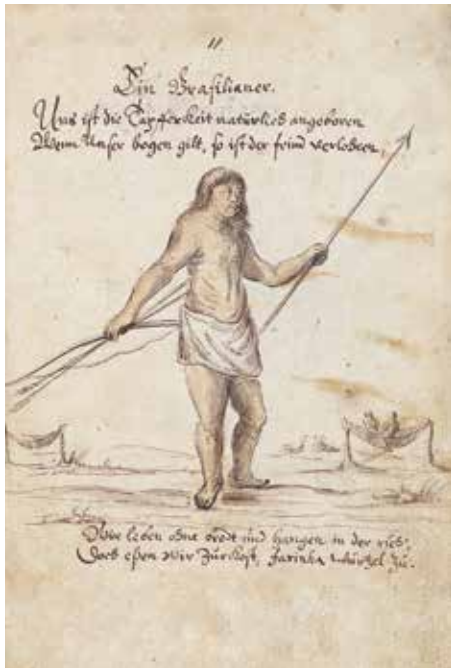 11
Ein Brasilianer.
Uns ist die Tapferkeit natürlich angeboren
Wem Unser bogen gilt, so ist der feind verlohren.
Wir leben ohne brodt und hangen in der ruh,
Doch eßen wir zur Kost, farinha wurzel zu.